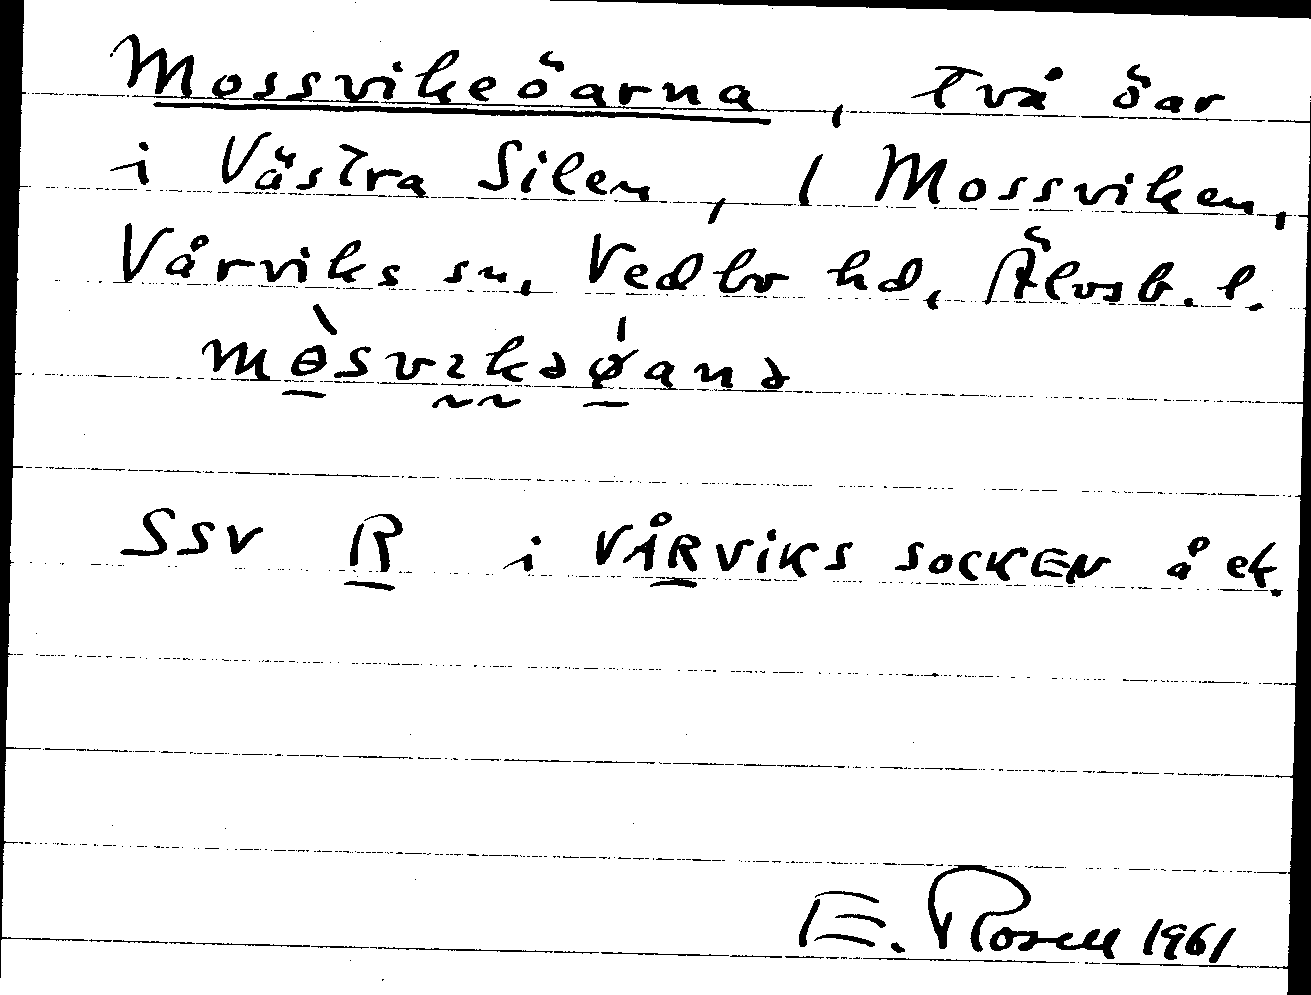 Mossvikeöarna, två öar
i Västra Silen, i Mossviken,
Vårviks sn, Vedbo hd, Älvsb. l.
mɵ̀svıkəǿanə
SSV R i VÅRVIKS SOCKEN å ek.
E. Rosell 1961